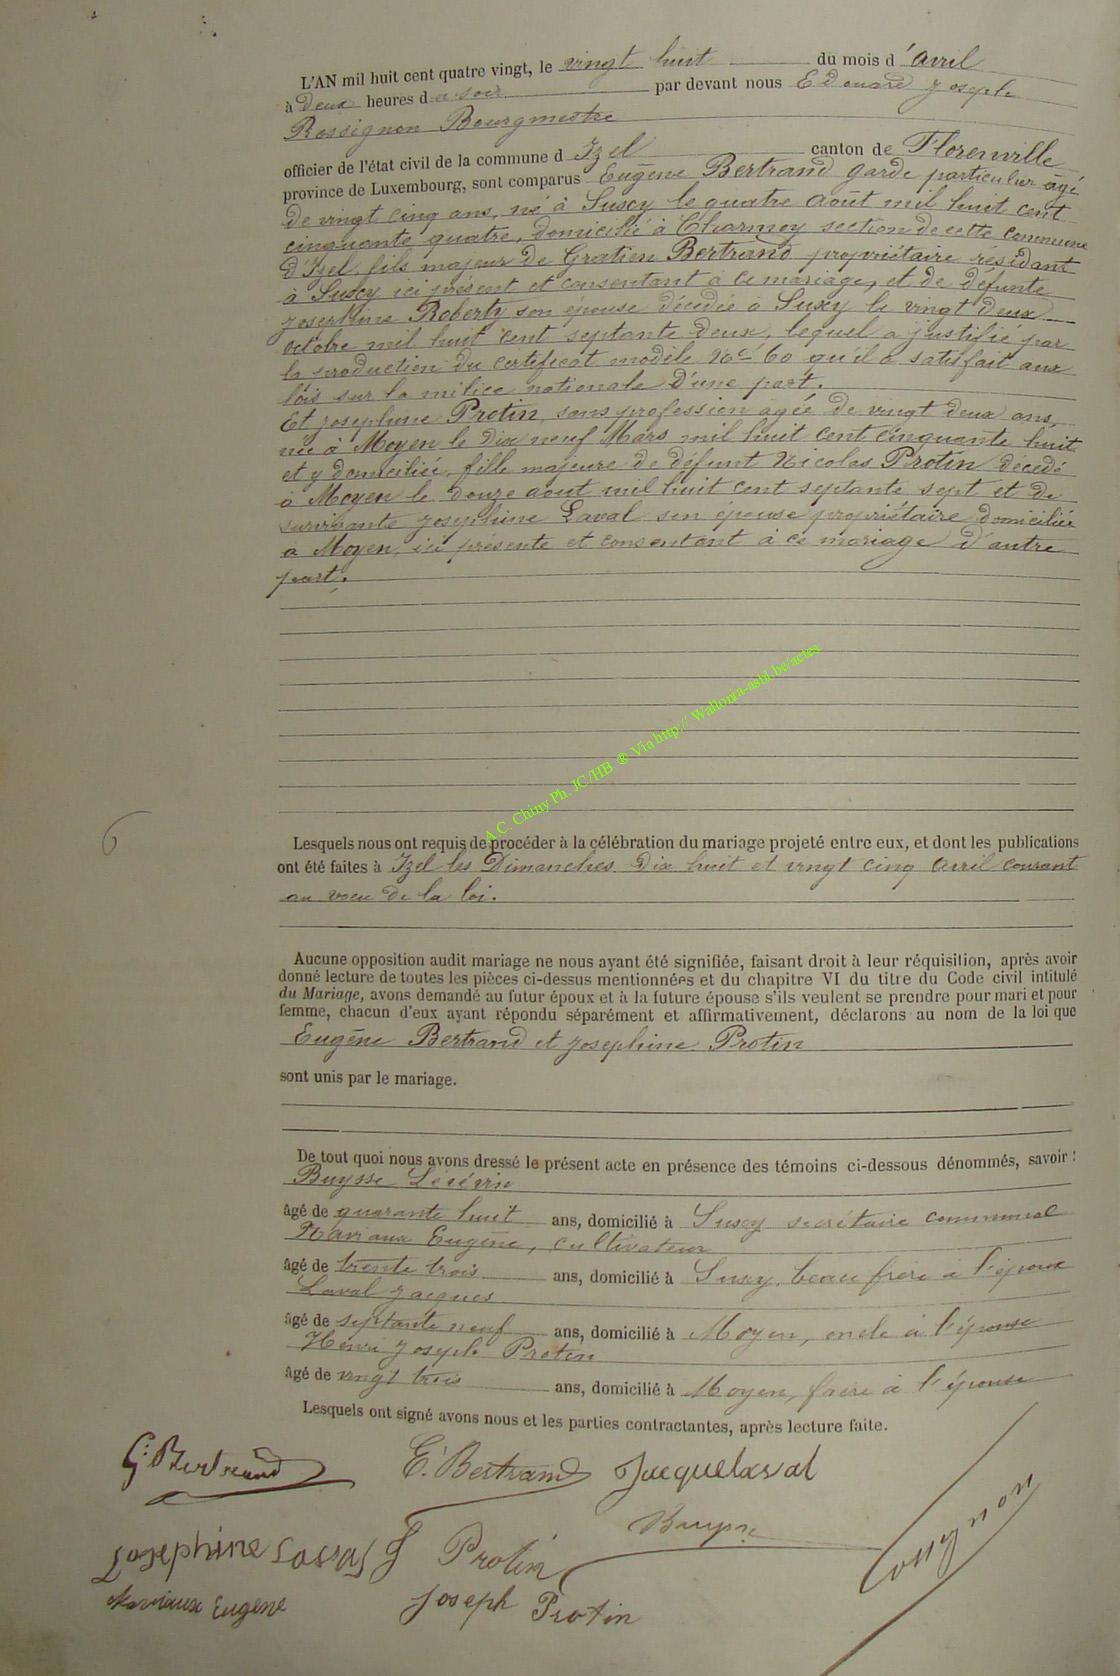 L'AN mil huit cent quatre vingt, le vingt huit du mois d'avril
à deux heures du soir par devant nous Edouard Joseph
Rossignon Bourgmestre
officier de l'état civil de la commune d Izel canton de Florenville
province de Luxembourg, sont comparus Eugène Bertrand garde particulier âgé
de vingt cinq ans, né à Suxcy le quatre Août mil huit cent
cinquante quatre, domicilié à Charmoy section de cette commune
d'Izel, fils majeur de Gratien Bertrand propriétaire résidant
à Suxcy ici présent et consentant à ce mariage, et de défunte
Joséphine Robert son épouse décédée à Suxy le vingt deux
octobre mil huit cent septante deux, lequel a justifié par
la production du certificat modèle No 60 qu'il a satisfait aux
lois sur la milice nationale d'une part.
Et Josephine Protin, sans profession âgée de vingt deux ans,
née à Moyen le dix neuf Mars mil huit cent cinquante huit
et y domiciliée, fille majeure de défunt Nicolas Protin décédé
à Moyen le douze aout mil huit cent septante sept et de
survivante Josephine Laval son épouse propriétaire domiciliée
à Moyen, ici présente et consentant à ce mariage d'autre
part.
A.C. Chiny Ph. JC/HB ® Via http:// Wallonia-asbl.be/actes
6
Lesquels nous ont requis de procéder à la célébration du mariage projeté entre eux, et dont les publications
ont été faites à Izel les Dimanches dix huit et vingt cinq avril courant
au voeu de la loi.
Aucune opposition audit mariage ne nous ayant été signifiée, faisant droit à leur réquisition, après avoir
donné lecture de toutes les pièces ci-dessus mentionnées et du chapitre VI du titre du Code civil intitulé
du Mariage, avons demandé au futur époux et à la future épouse s'ils veulent se prendre pour mari et pour
femme, chacun d'eux ayant répondu séparément et affirmativement, déclarons au nom de la loi que
Eugène Bertrand et Josephine Protin
sont unis par le mariage.
De tout quoi nous avons dressé le présent acte en présence des témoins ci-dessous dénommés, savoir :
Buysse Sévérin
âgé de quarante huit ans, domicilié à Suxcy secrétaire communal
Maviaux Eugène, cultivateur
âgé de trente trois ans, domicilié à Suxy, beau frère à l'époux
Laval Jacques
âgé de septante neuf ans, domicilié à Moyen, oncle à l'épouse
Henri Joseph Protin
âgé de vingt trois ans, domicilié à Moyen, frère à l'épouse
Lesquels ont signé avons nous et les parties contractantes, après lecture faite.
G. Bertrand E. Bertrand Jacquelaval
Josephine J Protin Buysse
Eugene Joseph Protin